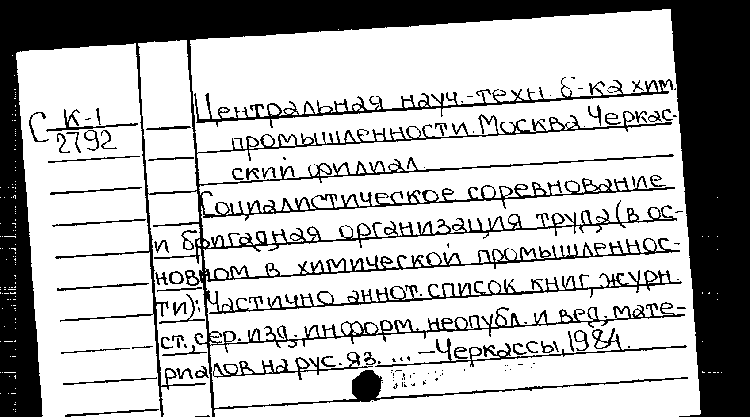 Центральная науч.-техн. б-ка хим.
С К-1
2792
промышленности. Москва. Черкас-
ский филиал.
Социалистическое соревнование
и бригадная организация труда (в ос-
новном в химической промышленнос-
ти): Частично аннот. список книг, журн.
ст., сер. изд., информ., неопубл. и вед. мате-
риалов на рус. яз. ... – Черкассы, 1984.